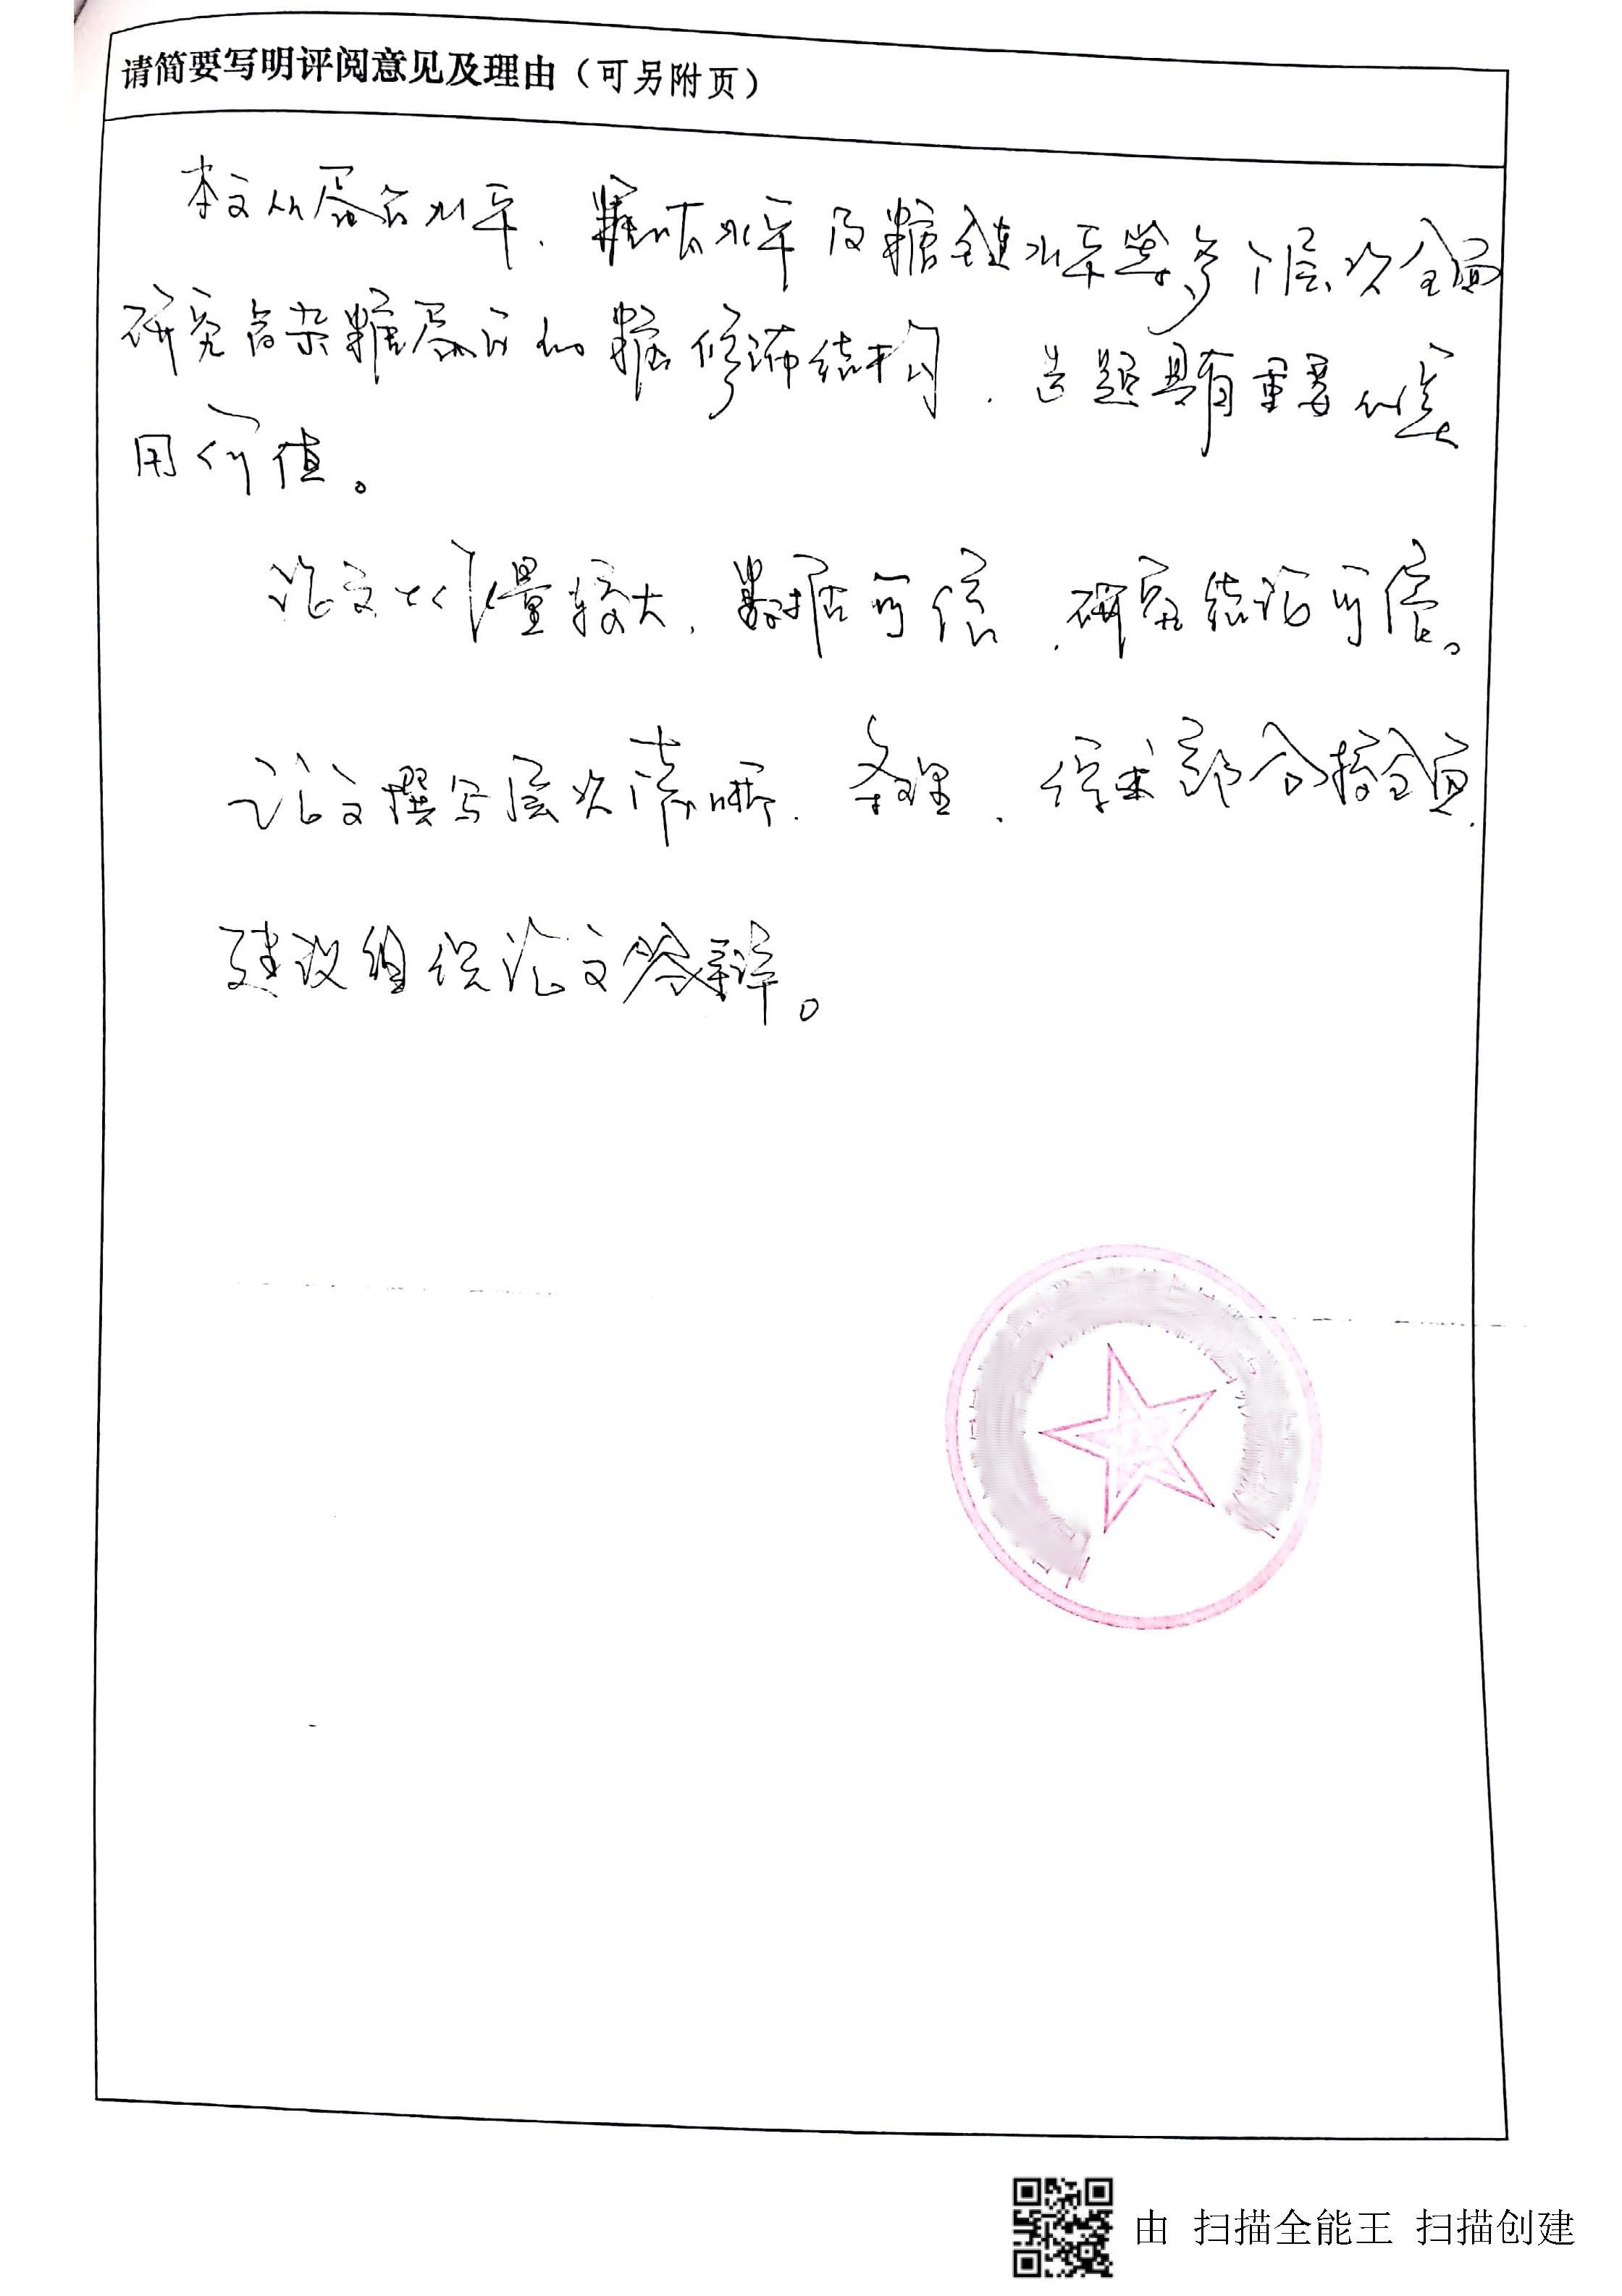 请简要写明评阅意见及理由（可另附页）
本文从蛋白水平、糖肽水平及糖链水平等多个层次全面
研究复杂糖蛋白的糖修饰结构，选题具有重要的实
用价值。
论文工作量较大，数据可信，研究结论可信。
论文撰写层次清晰，条理，综述部分较全面，
建议组织论文答辩。
由 扫描全能王 扫描创建